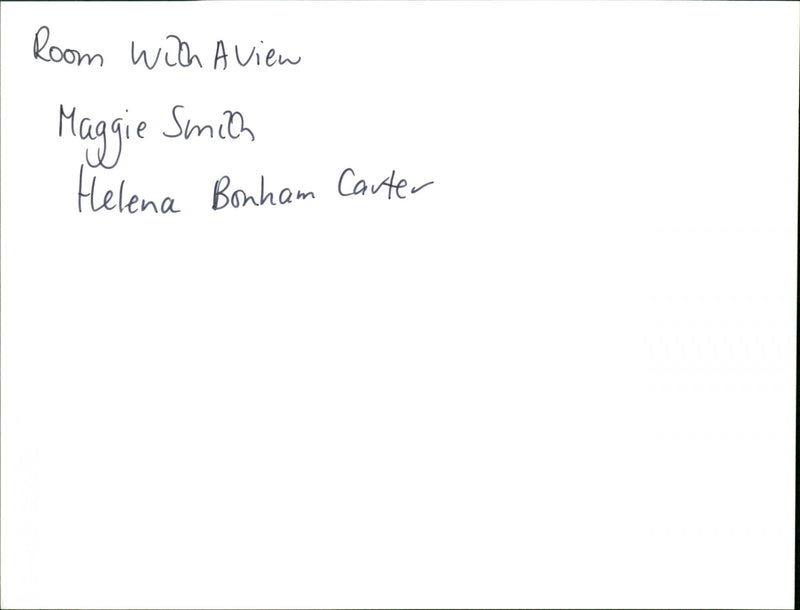 Room With A View
Maggie Smith
Helena Bonham Carter